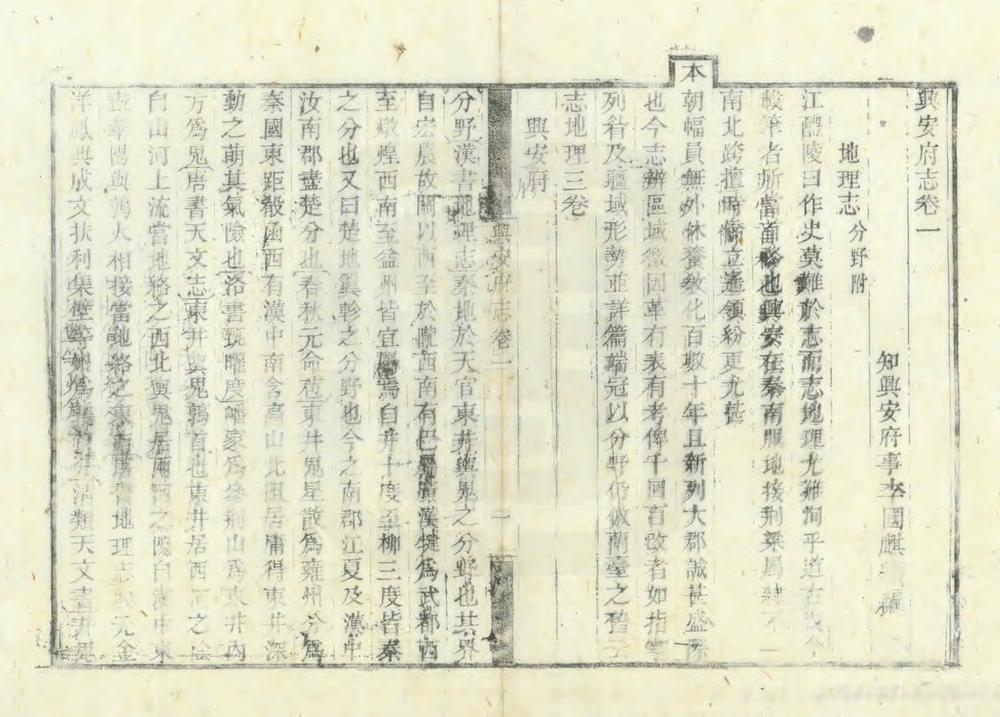 興安府志卷一
地理志分野附
知興安府事李國麒編
江醴陵曰作史莫難於志而志地理尤難洵乎道古證今
載筆者所當首務也興安在秦南服地接荆梁屬隸不一
南北跨擅時僑立遙領紛更尤甚
本
朝幅員無外休養教化百數十年且新列大郡誠甚盛際
也今志辨區域徵因革有表有考俾千圖百改者如指掌
列眉及疆域形勢並詳篇端冠以分野仍倣蘭臺之舊
志地理三卷
興安府
興安府志 卷一 一
分野漢書地理志秦地於天官東井輿鬼之分野也其界
自宏農故關以西至於隴西南有巴蜀廣漢犍為武都西
至燉煌西南至益州皆宜屬焉自井十度至柳三度皆秦
之分也又曰楚地翼軫之分野也今之南郡江夏及漢中
汝南郡盡楚分也春秋元命苞東井鬼星散為雍州分為
秦國東距殽函西有漢中南含高山北阻居庸得東井深
動之萌其氣險也洛書甄曜度嶓冢為參荆山為東井內
方為鬼唐書天文志東井輿鬼鶉首也東井居西河之陰
自山河上流當地絡之西北輿鬼居兩河之陽自當中東
盡華陽與鶉火相接當地絡之東南唐書地理志興元金
洋鳳興成文扶利集壁等州為鶉首